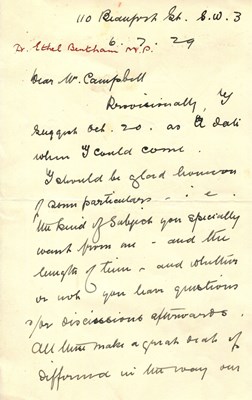 110 Beaufort St. S.W. 3
Dr. Ethel Bentham M.P.
6. 7. 29
Dear Mr. Campbell
Provisionally, I
suggest Oct. 20. as a date
when I could come.
I should be glad however
of some particulars - i. e.
the kind of subject you specially
want from me - and the
length of time - and whether
or not you have questions
&/or discussions afterwards.
All these make a great deal of
difference in the way one